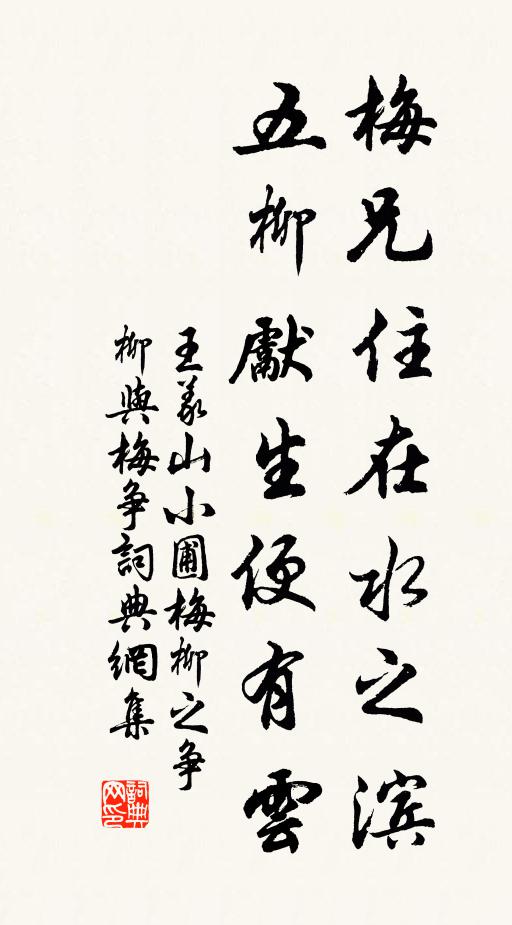 梅兄住在水之滨
五柳獻生便有雲
王義山小圃梅柳之争
柳與梅争詞典網集
詞典網印